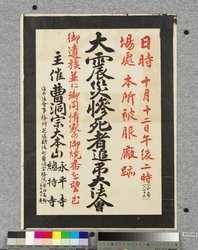 日時 十月十二日午後二時
場處 本所被服廠跡
大震災惨死者追弔大法會
御遺族並に御同情家の御焼香を望む
主催 曹洞宗大本山 永平寺 總持寺